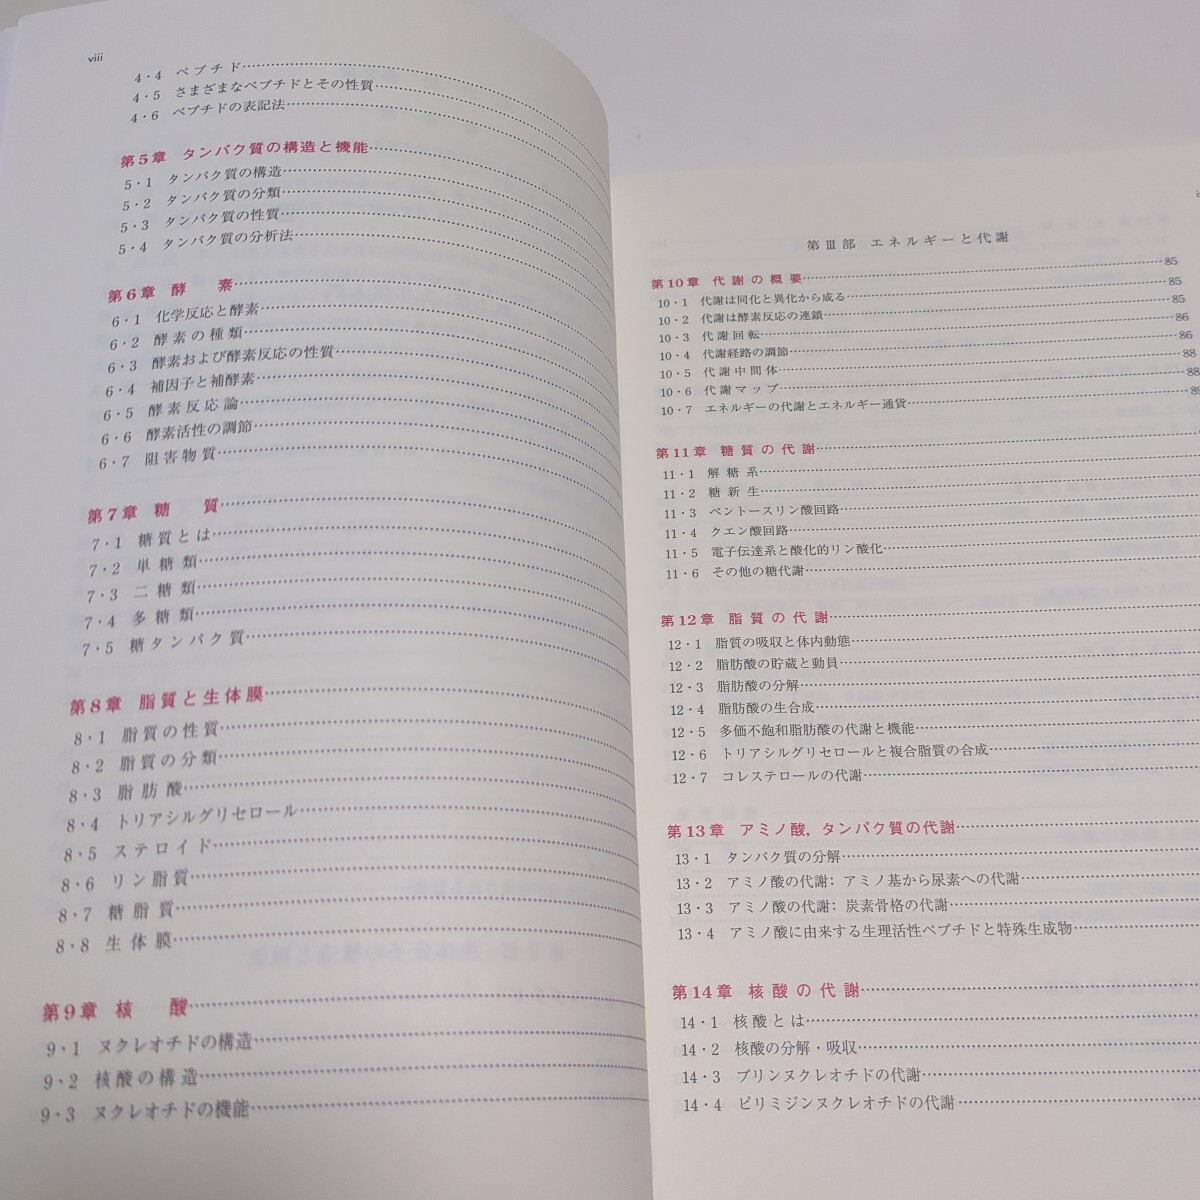 viii
4・4 ペプチド
4・5 さまざまなペプチドとその性質
4・6 ペプチドの表記法
第5章 タンパク質の構造と機能
5・1 タンパク質の構造
5・2 タンパク質の分類
5・3 タンパク質の性質
5・4 タンパク質の分析法
第6章 酵素
6・1 化学反応と酵素
6・2 酵素の種類
6・3 酵素および酵素反応の性質
6・4 補因子と補酵素
6・5 酵素反応論
6・6 酵素活性の調節
6・7 阻害物質
第7章 糖質
7・1 糖質とは
7・2 単糖類
7・3 二糖類
7・4 多糖類
7・5 糖タンパク質
第8章 脂質と生体膜
8・1 脂質の性質
8・2 脂質の分類
8・3 脂肪酸
8・4 トリアシルグリセロール
8・5 ステロイド
8・6 リン脂質
8・7 糖脂質
8・8 生体膜
第9章 核酸
9・1 ヌクレオチドの構造
9・2 核酸の構造
9・3 ヌクレオチドの機能
第Ⅲ部 エネルギーと代謝
第10章 代謝の概要 85
10・1 代謝は同化と異化から成る 85
10・2 代謝は酵素反応の連鎖 85
10・3 代謝回転 86
10・4 代謝経路の調節 86
10・5 代謝中間体 88
10・6 代謝マップ 88
10・7 エネルギーの代謝とエネルギー通貨 89
第11章 糖質の代謝
11・1 解糖系
11・2 糖新生
11・3 ペントースリン酸回路
11・4 クエン酸回路
11・5 電子伝達系と酸化的リン酸化
11・6 その他の糖代謝
第12章 脂質の代謝
12・1 脂質の吸収と体内動態
12・2 脂肪酸の貯蔵と動員
12・3 脂肪酸の分解
12・4 脂肪酸の生合成
12・5 多価不飽和脂肪酸の代謝と機能
12・6 トリアシルグリセロールと複合脂質の合成
12・7 コレステロールの代謝
第13章 アミノ酸，タンパク質の代謝
13・1 タンパク質の分解
13・2 アミノ酸の代謝: アミノ基から尿素への代謝
13・3 アミノ酸の代謝: 炭素骨格の代謝
13・4 アミノ酸に由来する生理活性ペプチドと特殊生成物
第14章 核酸の代謝
14・1 核酸とは
14・2 核酸の分解・吸収
14・3 プリンヌクレオチドの代謝
14・4 ピリミジンヌクレオチドの代謝